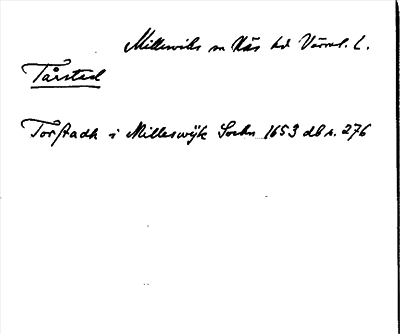 Millewiks sn Näs hd Värml. l.
Tårstad
Torstadh i Milleswijk Sochn 1653 db s. 276